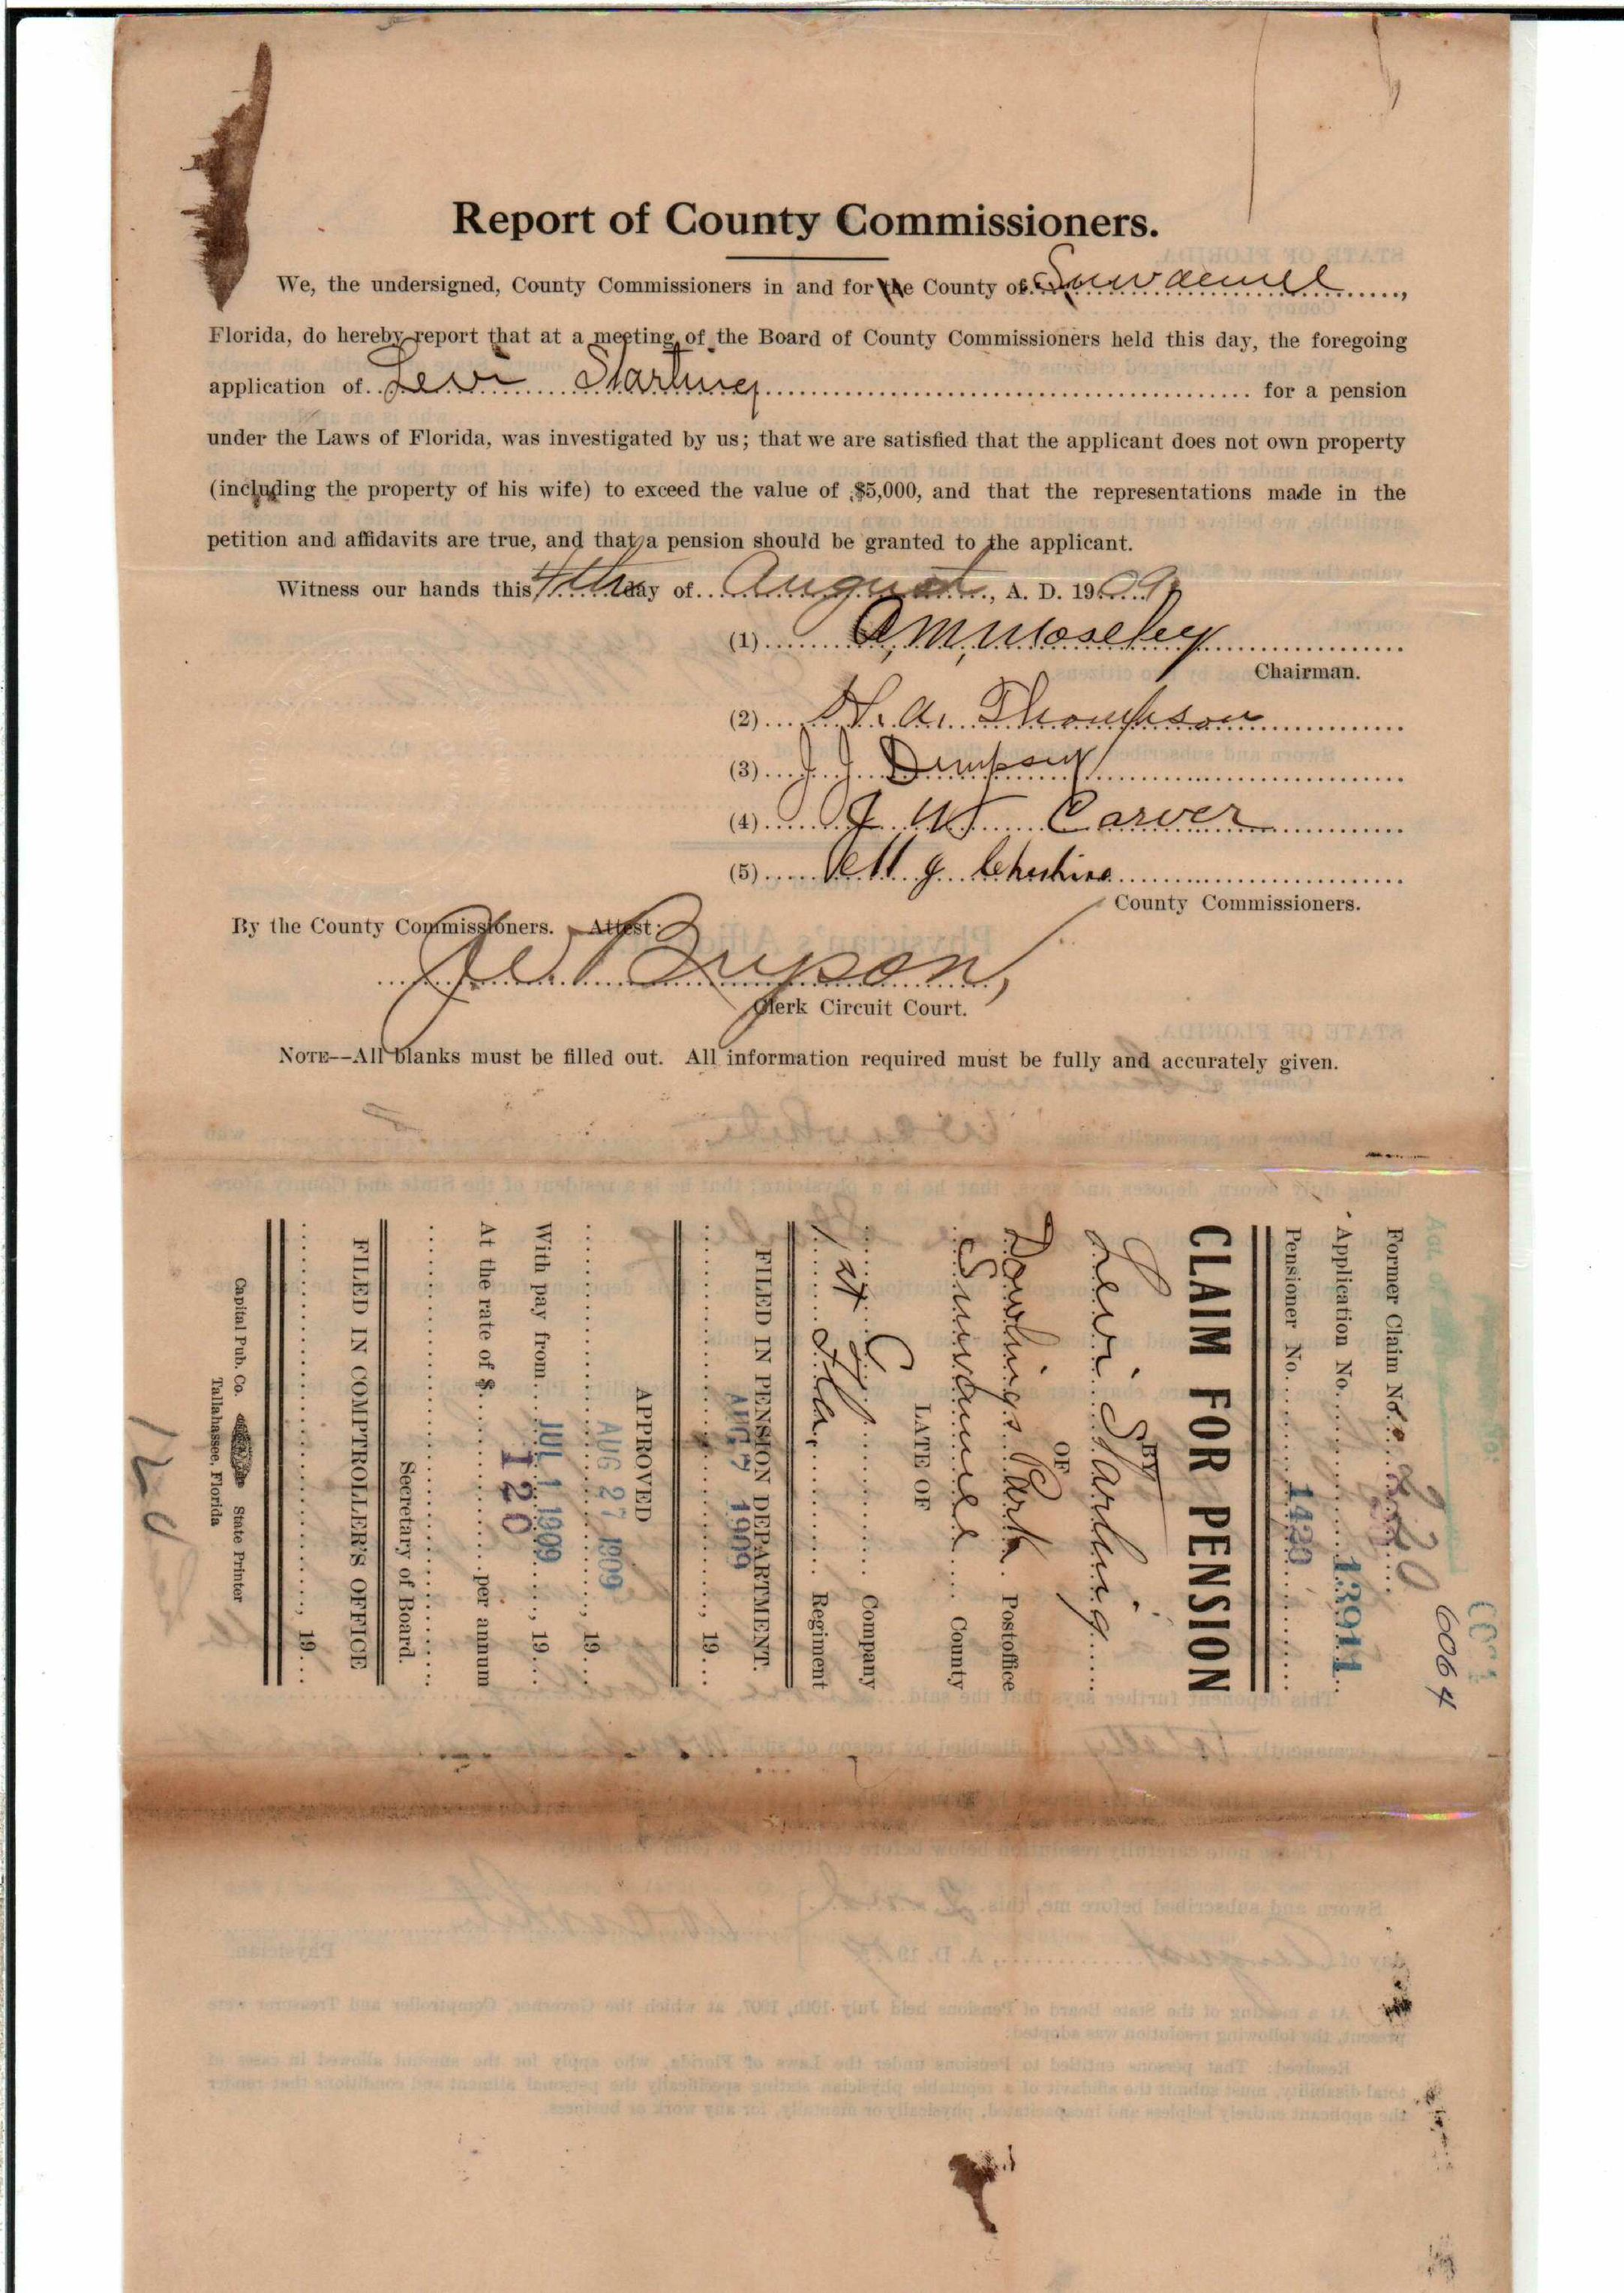 Report of County Commissioners.
We, the undersigned, County Commissioners in and for the County of Suwannee,
Florida, do hereby report that at a meeting of the Board of County Commissioners held this day, the foregoing
application of Levi Starling for a pension
under the Laws of Florida, was investigated by us; that we are satisfied that the applicant does not own property
(including the property of his wife) to exceed the value of $5,000, and that the representations made in the
petition and affidavits are true, and that a pension should be granted to the applicant.
Witness our hands this 4th day of August, A. D. 1909
(1) M Moseley
Chairman.
(2) H. A. Thompson
(3) J J Dempsey
(4) J W Carver
(5) Cheshire
County Commissioners.
By the County Commissioners. Attest:
J W Bryson,
Clerk Circuit Court.
NOTE--All blanks must be filled out. All information required must be fully and accurately given.
6064
Former Claim No.
Application No. 13911
Pensioner No. 1420
CLAIM FOR PENSION
BY
Levi Starling
OF
Dowlings Park Postoffice
Suwannee County
LATE OF
G Company
1st Fla, Regiment
FILED IN PENSION DEPARTMENT.
AUG 7 1909 , 19
APPROVED
AUG 27 1909 , 19
With pay from JUL 1 1909 , 19
At the rate of $ 120 per annum
Secretary of Board.
FILED IN COMPTROLLER'S OFFICE
, 19
Capital Pub. Co. State Printer
Tallahassee, Florida
120